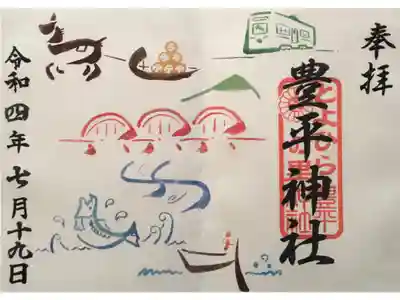 奉拝
豊平神社
令和四年七月十九日